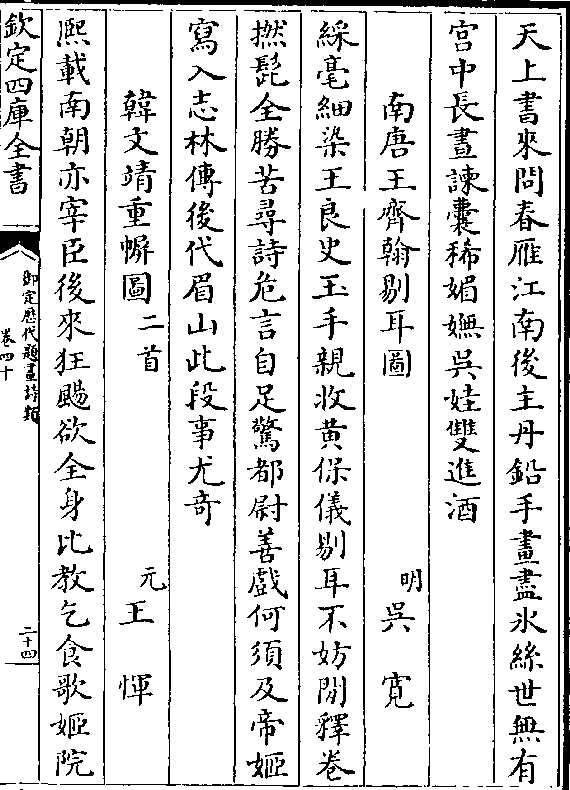 天上書來問春雁江南後主丹鉛手畫盡氷絲世無有
宫中長晝諫囊稀媚嫵吳娃雙進酒
南唐王齊翰剔耳圖 明 吳寛
綵毫細染王良史玉手親收黄保儀剔耳不妨閒釋卷
撚髭全勝苦尋詩危言自足驚都尉善戲何須及帝姬
寫入志林傳後代眉山此段事尤竒
韓文靖重幈圖二首 元 王惲
熈載南朝亦宰臣後來狂颺欲全身比教乞食歌姬院
欽定四庫全書
御定歷代題畫詩類
卷四十
二十四